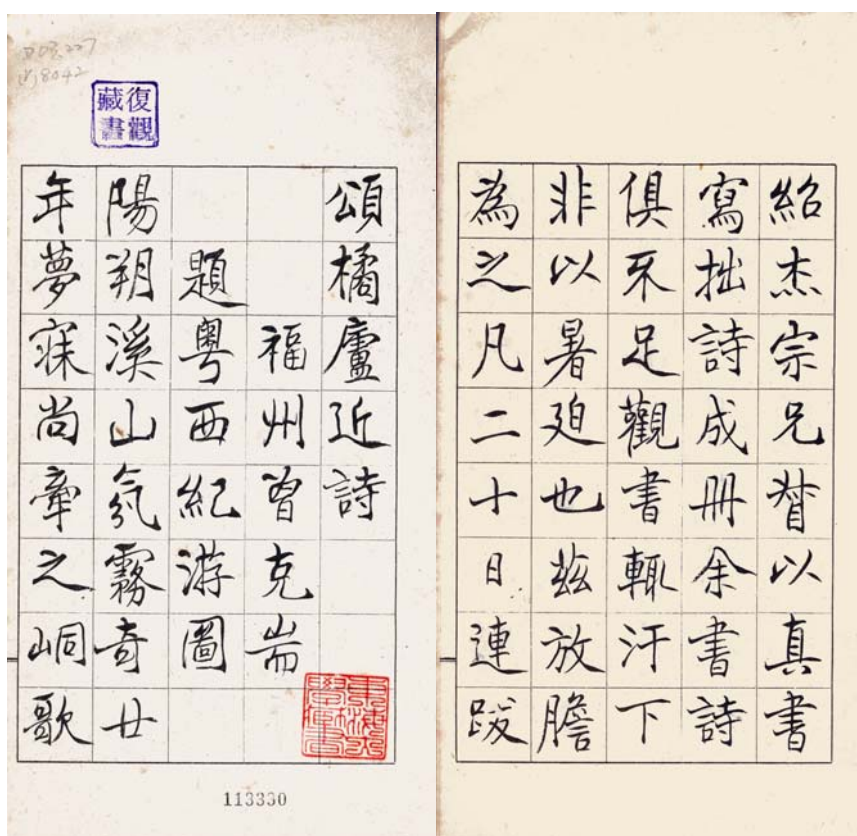 復觀
藏書
頌橘廬近詩
福州曾克耑
題粵西紀游圖
陽朔溪山氛霧奇廿
年夢寐尚牽之峒歌
113330
紹杰宗兄督以真書
寫拙詩成冊余書詩
俱不足觀書輒汗下
非以暑廹也茲放膽
為之凡二十日連跋